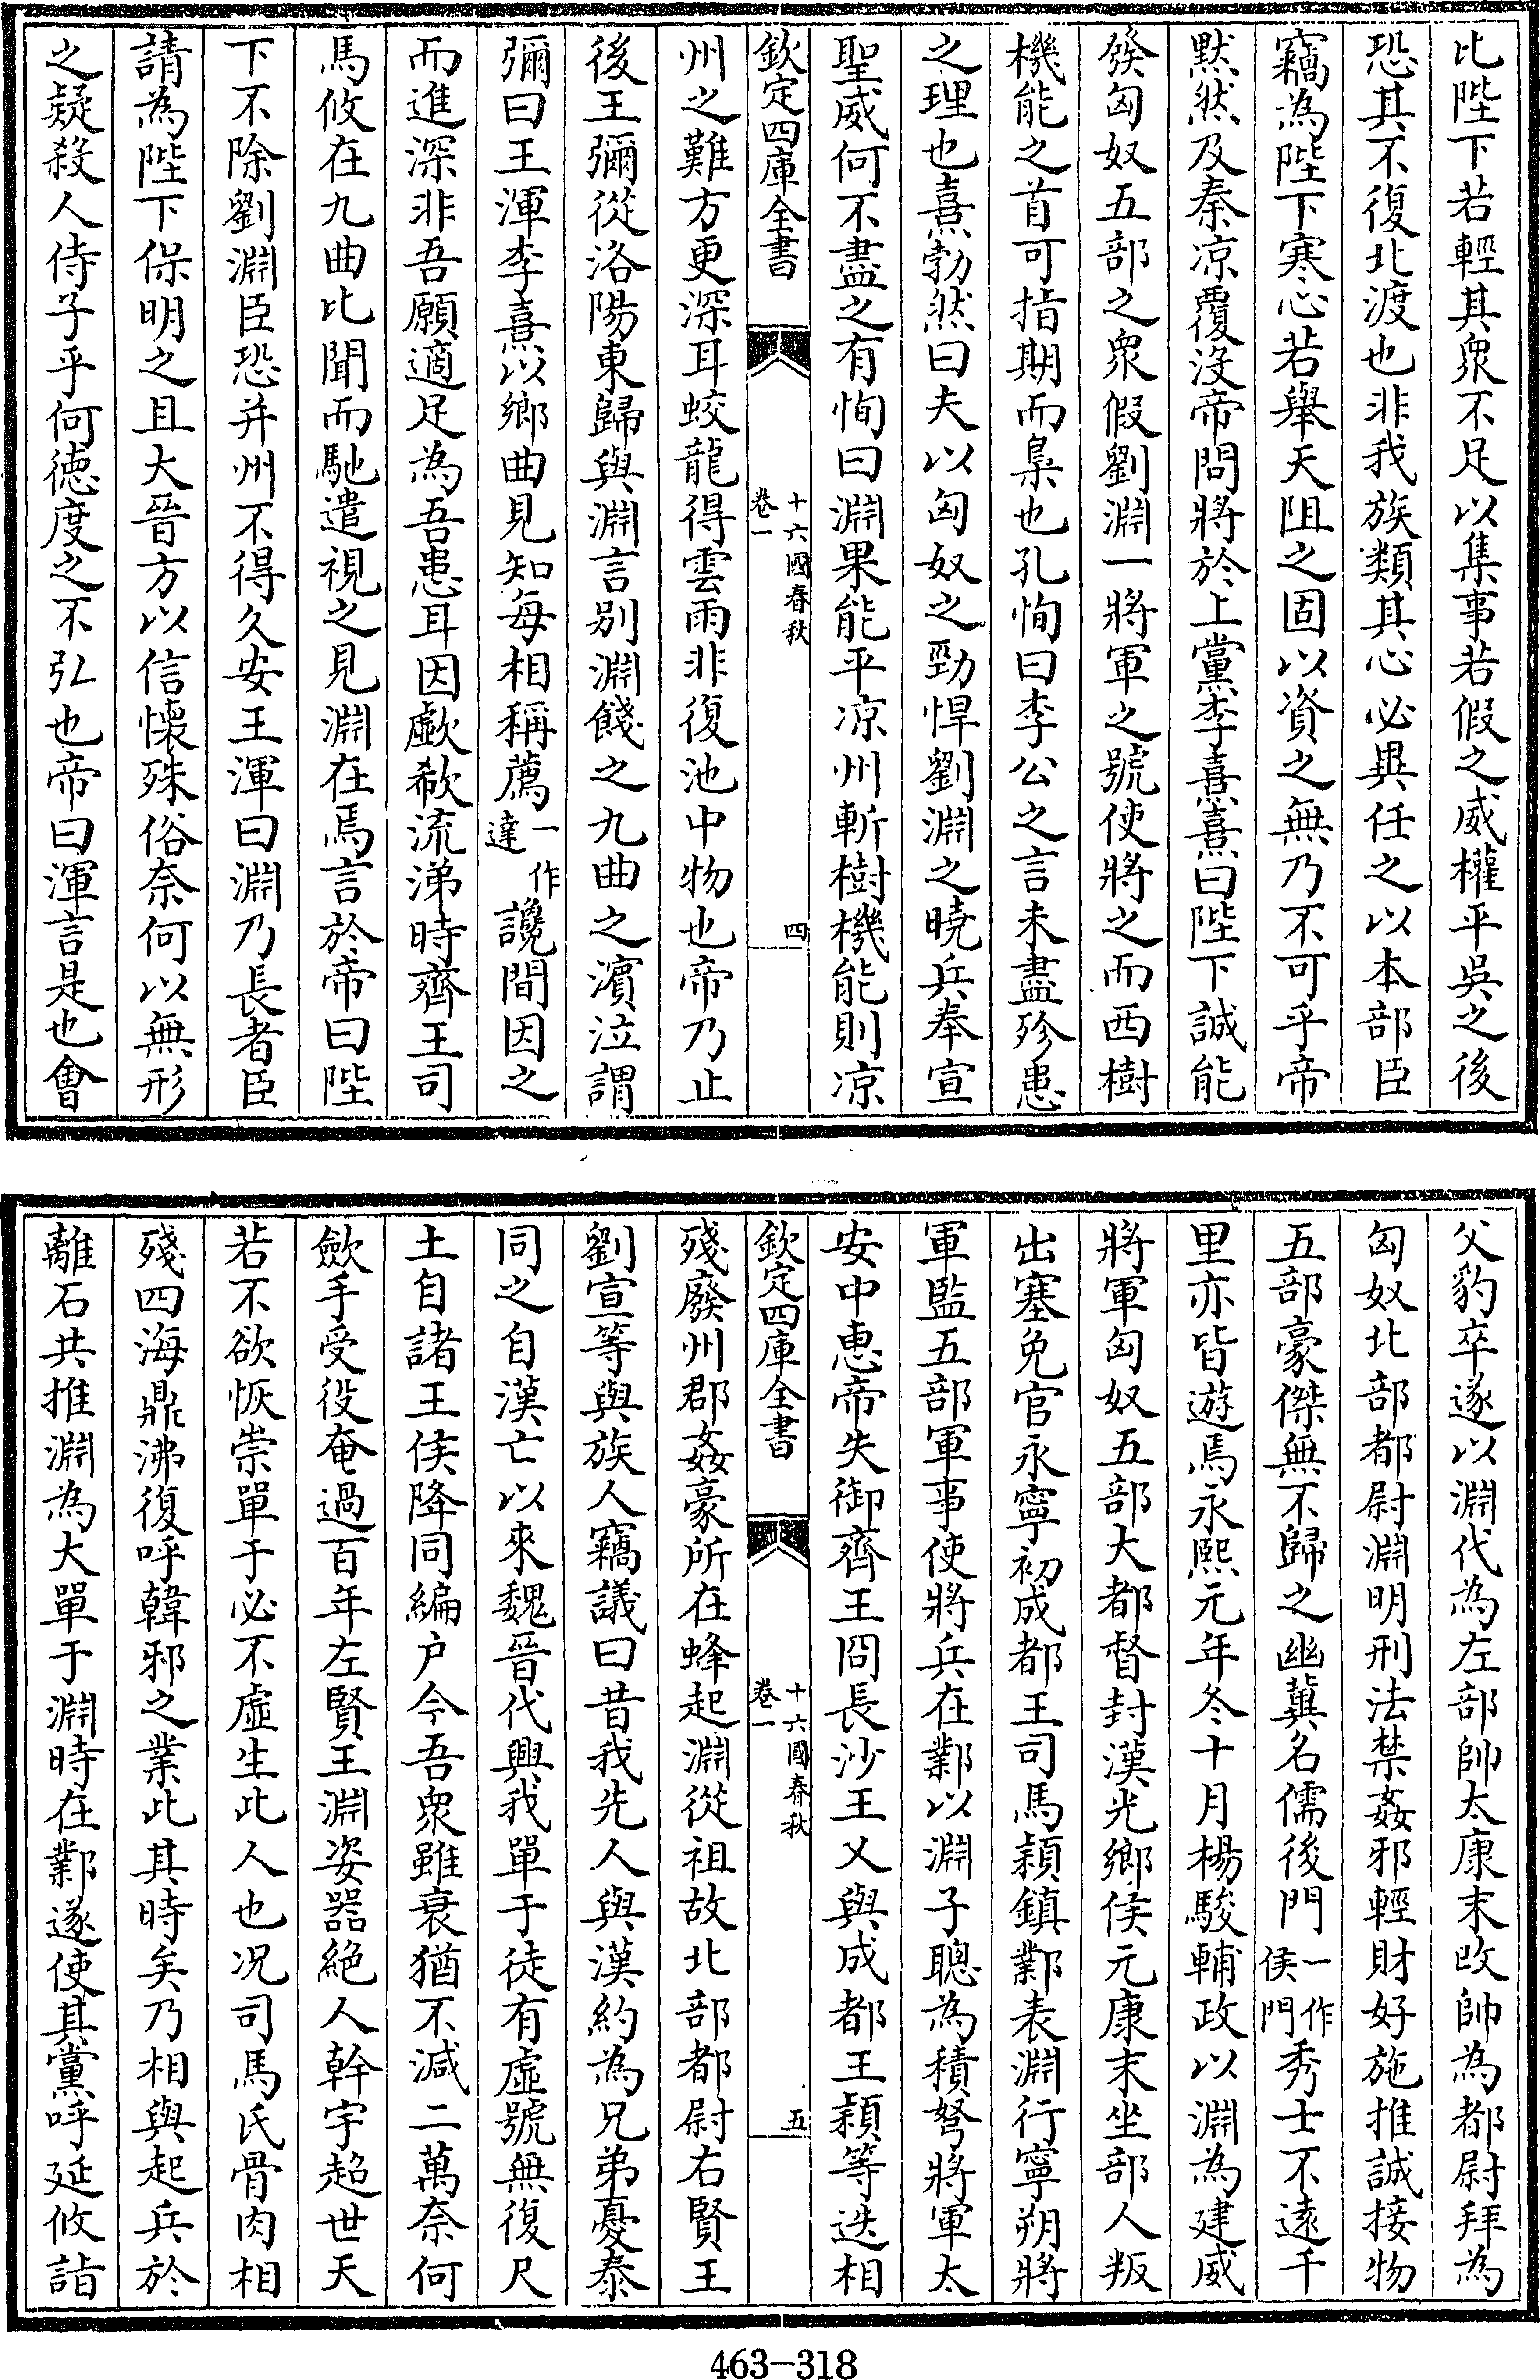 比陛下若輕其衆不足以集事若假之威權平吳之後
恐其不復北渡也非我族類其心必異任之以本部臣
竊為陛下寒心若舉天阻之固以資之無乃不可乎帝
黙然及秦凉覆沒帝問將於上黨李熹熹曰陛下誠能
發匈奴五部之衆假劉淵一將軍之號使將之而西樹
機能之首可指期而梟也孔恂曰李公之言未盡殄患
之理也熹勃然曰夫以匈奴之勁悍劉淵之曉兵奉宣
聖威何不盡之有恂曰淵果能平凉州斬樹機能則凉
欽定四庫全書 十六國春秋 卷一 四
州之難方更深耳蛟龍得雲雨非復池中物也帝乃止
後王彌從洛陽東歸與淵言別淵餞之九曲之濱泣謂
彌曰王渾李熹以鄉曲見知每相稱薦一作達讒間因之
而進深非吾願適足為吾患耳因歔欷流涕時齊王司
馬攸在九曲比聞而馳遣視之見淵在焉言於帝曰陛
下不除劉淵臣恐并州不得久安王渾曰淵乃長者臣
請為陛下保明之且大晉方以信懷殊俗奈何以無形
之疑殺人侍子乎何德度之不弘也帝曰渾言是也會
父豹卒遂以淵代為左部帥太康末改帥為都尉拜為
匈奴北部都尉淵明刑法禁姦邪輕財好施推誠接物
五部豪傑無不歸之幽冀名儒後門一作侯門秀士不遠千
里亦皆遊焉永熙元年冬十月楊駿輔政以淵為建威
將軍匈奴五部大都督封漢光鄉侯元康末坐部人叛
出塞免官永寧初成都王司馬穎鎮鄴表淵行寧朔將
軍監五部軍事使將兵在鄴以淵子聰為積弩將軍太
安中惠帝失御齊王冏長沙王乂與成都王穎等迭相
欽定四庫全書 十六國春秋 卷一 五
殘廢州郡姦豪所在蜂起淵從祖故北部都尉右賢王
劉宣等與族人竊議曰昔我先人與漢約為兄弟憂泰
同之自漢亡以來魏晉代興我單于徒有虛號無復尺
土自諸王侯降同編户今吾衆雖衰猶不減二萬奈何
歛手受役奄過百年左賢王淵姿器絶人幹宇超世天
若不欲恢崇單于必不虛生此人也况司馬氏骨肉相
殘四海鼎沸復呼韓邪之業此其時矣乃相與起兵於
離石共推淵為大單于淵時在鄴遂使其黨呼延攸詣
463-318